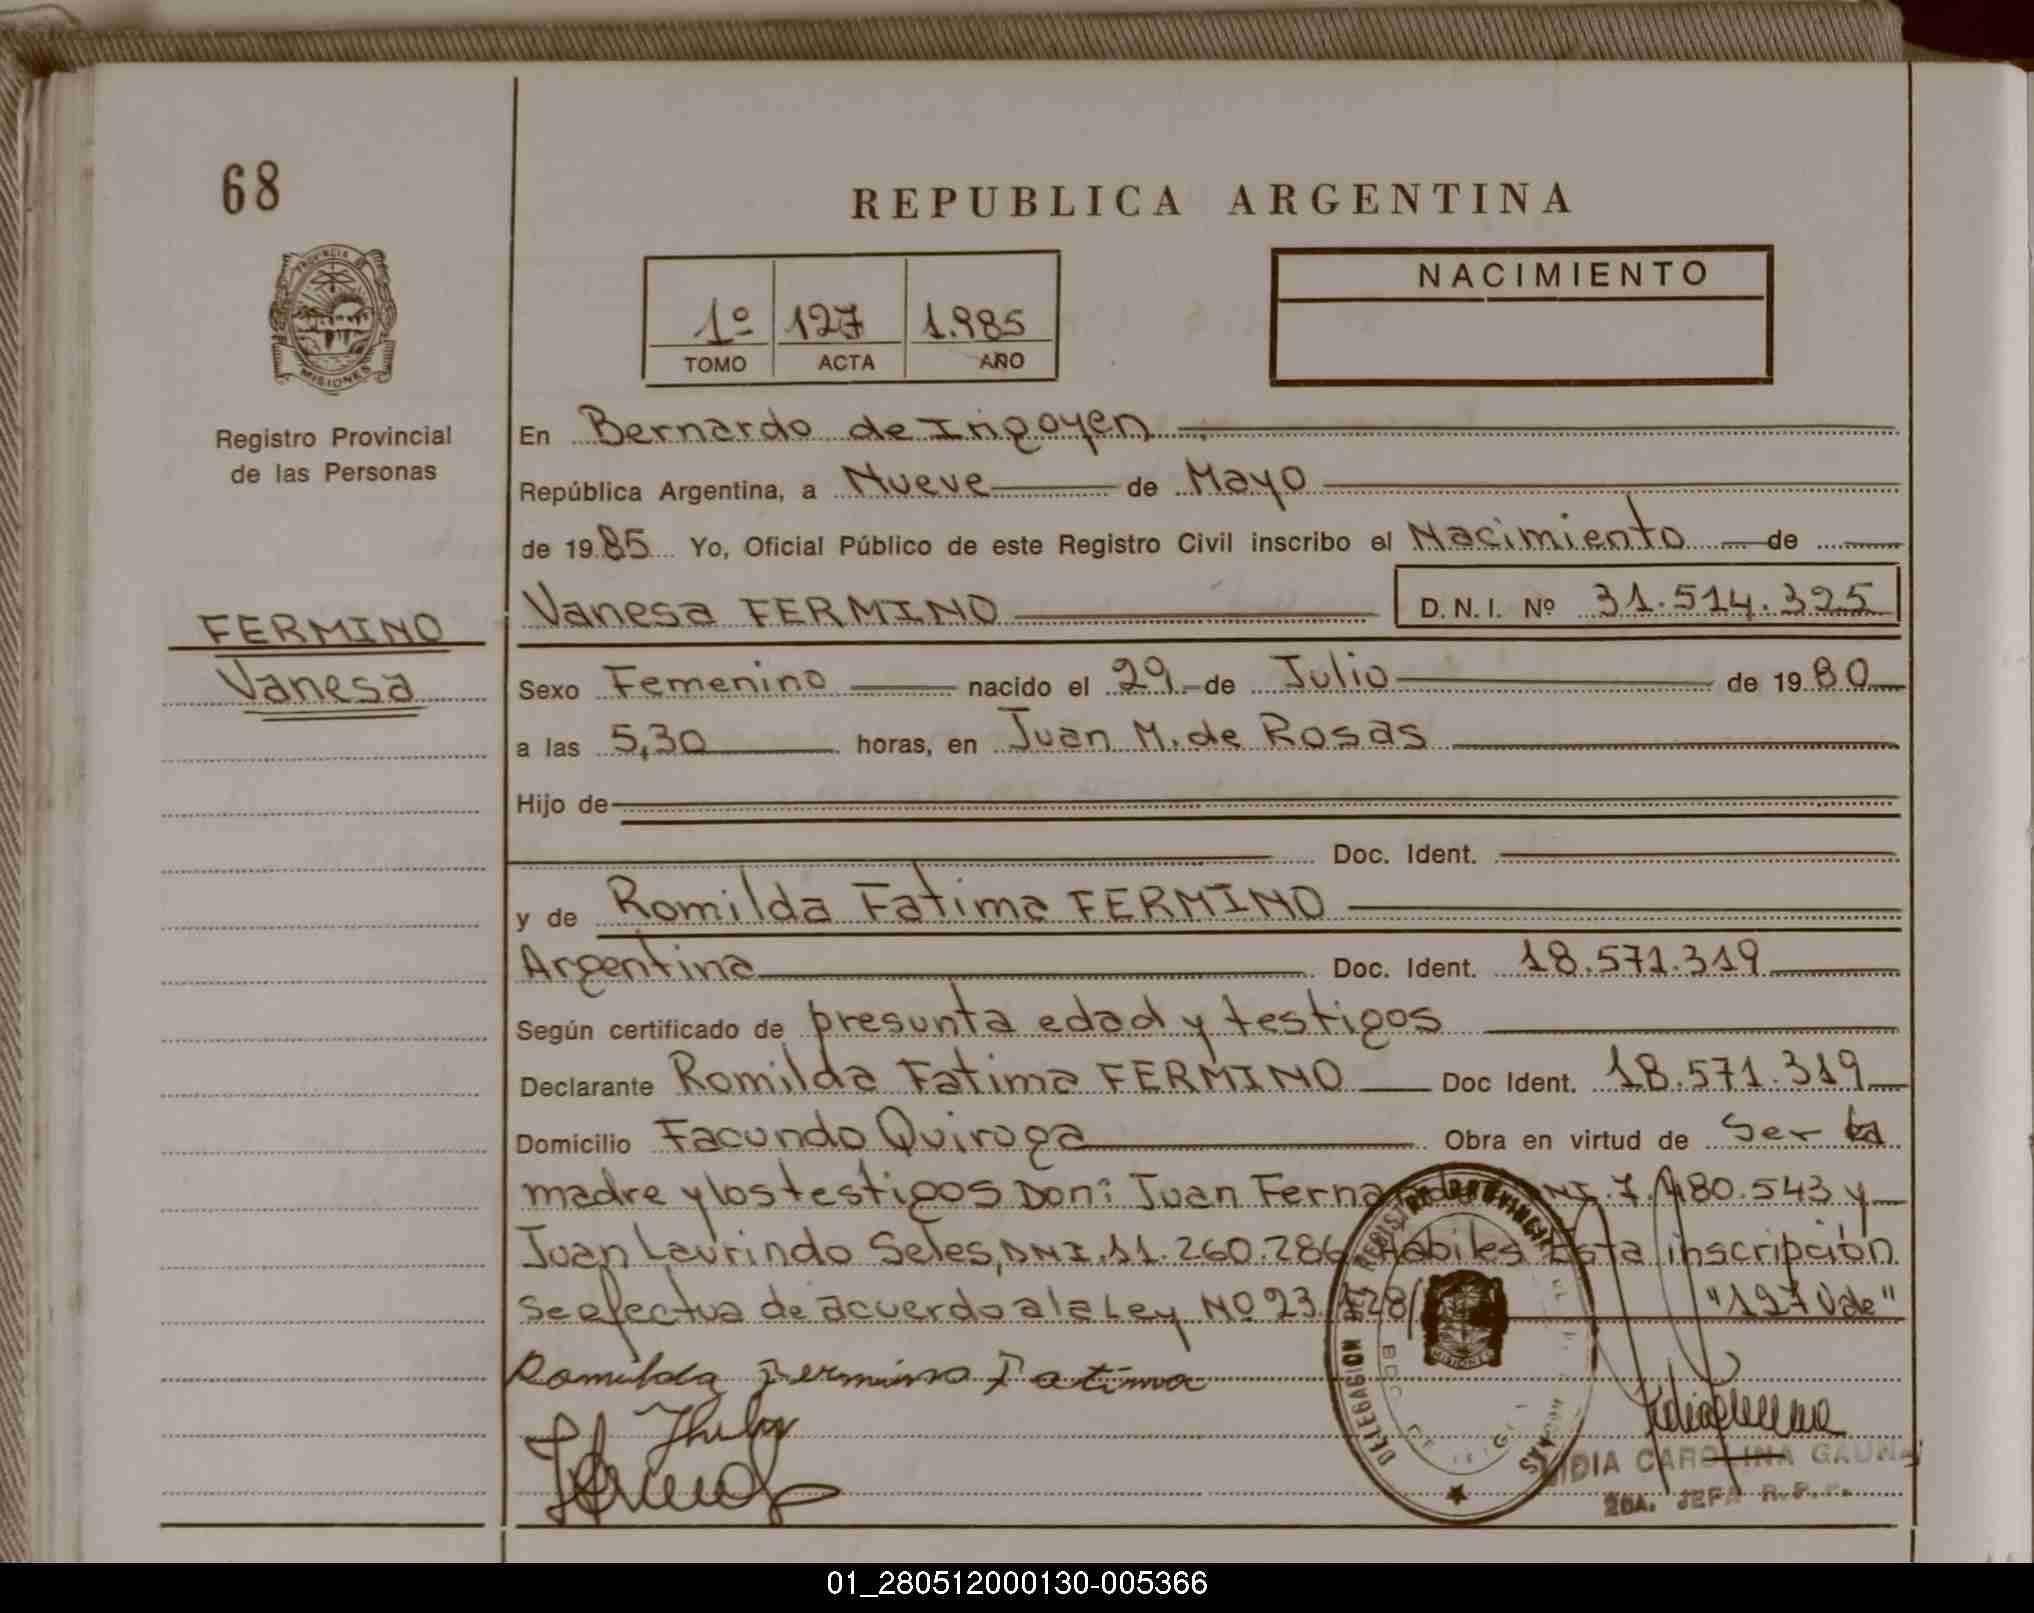 68
REPUBLICA ARGENTINA
PROVINCIA DE
MISIONES
Registro Provincial
de las Personas
1º 127 1.985
TOMO ACTA AÑO
NACIMIENTO
En Bernardo de Irigoyen
República Argentina, a Nueve de Mayo
de 1985 Yo, Oficial Público de este Registro Civil inscribo el Nacimiento de
Vanesa FERMINO D.N.I. Nº 31.514.325
FERMINO
Vanesa
Sexo Femenino nacido el 29 de Julio de 1980
a las 5,30 horas, en Juan M. de Rosas
Hijo de
Doc. Ident.
y de Romilda Fatima FERMINO
Argentina Doc. Ident. 18.571.319
Según certificado de presunta edad y testigos
Declarante Romilda Fatima FERMINO Doc Ident. 18.571.319
Domicilio Facundo Quiroga Obra en virtud de Ser la
madre y los testigos Don: Juan 480.543 y
Juan Laurindo Seles, DNI.11.260.286 Habiles Esta inscripción
se efectua de acuerdo a la Ley Nº 23. "127 Vde"
Romilda Fermino Fatima
DELEGACION DEL REGISTRO PROVINCIAL
MISIONES
LIDIA CAROLINA GAUNA
2DA. JEFA R.P.P.
01_280512000130-005366